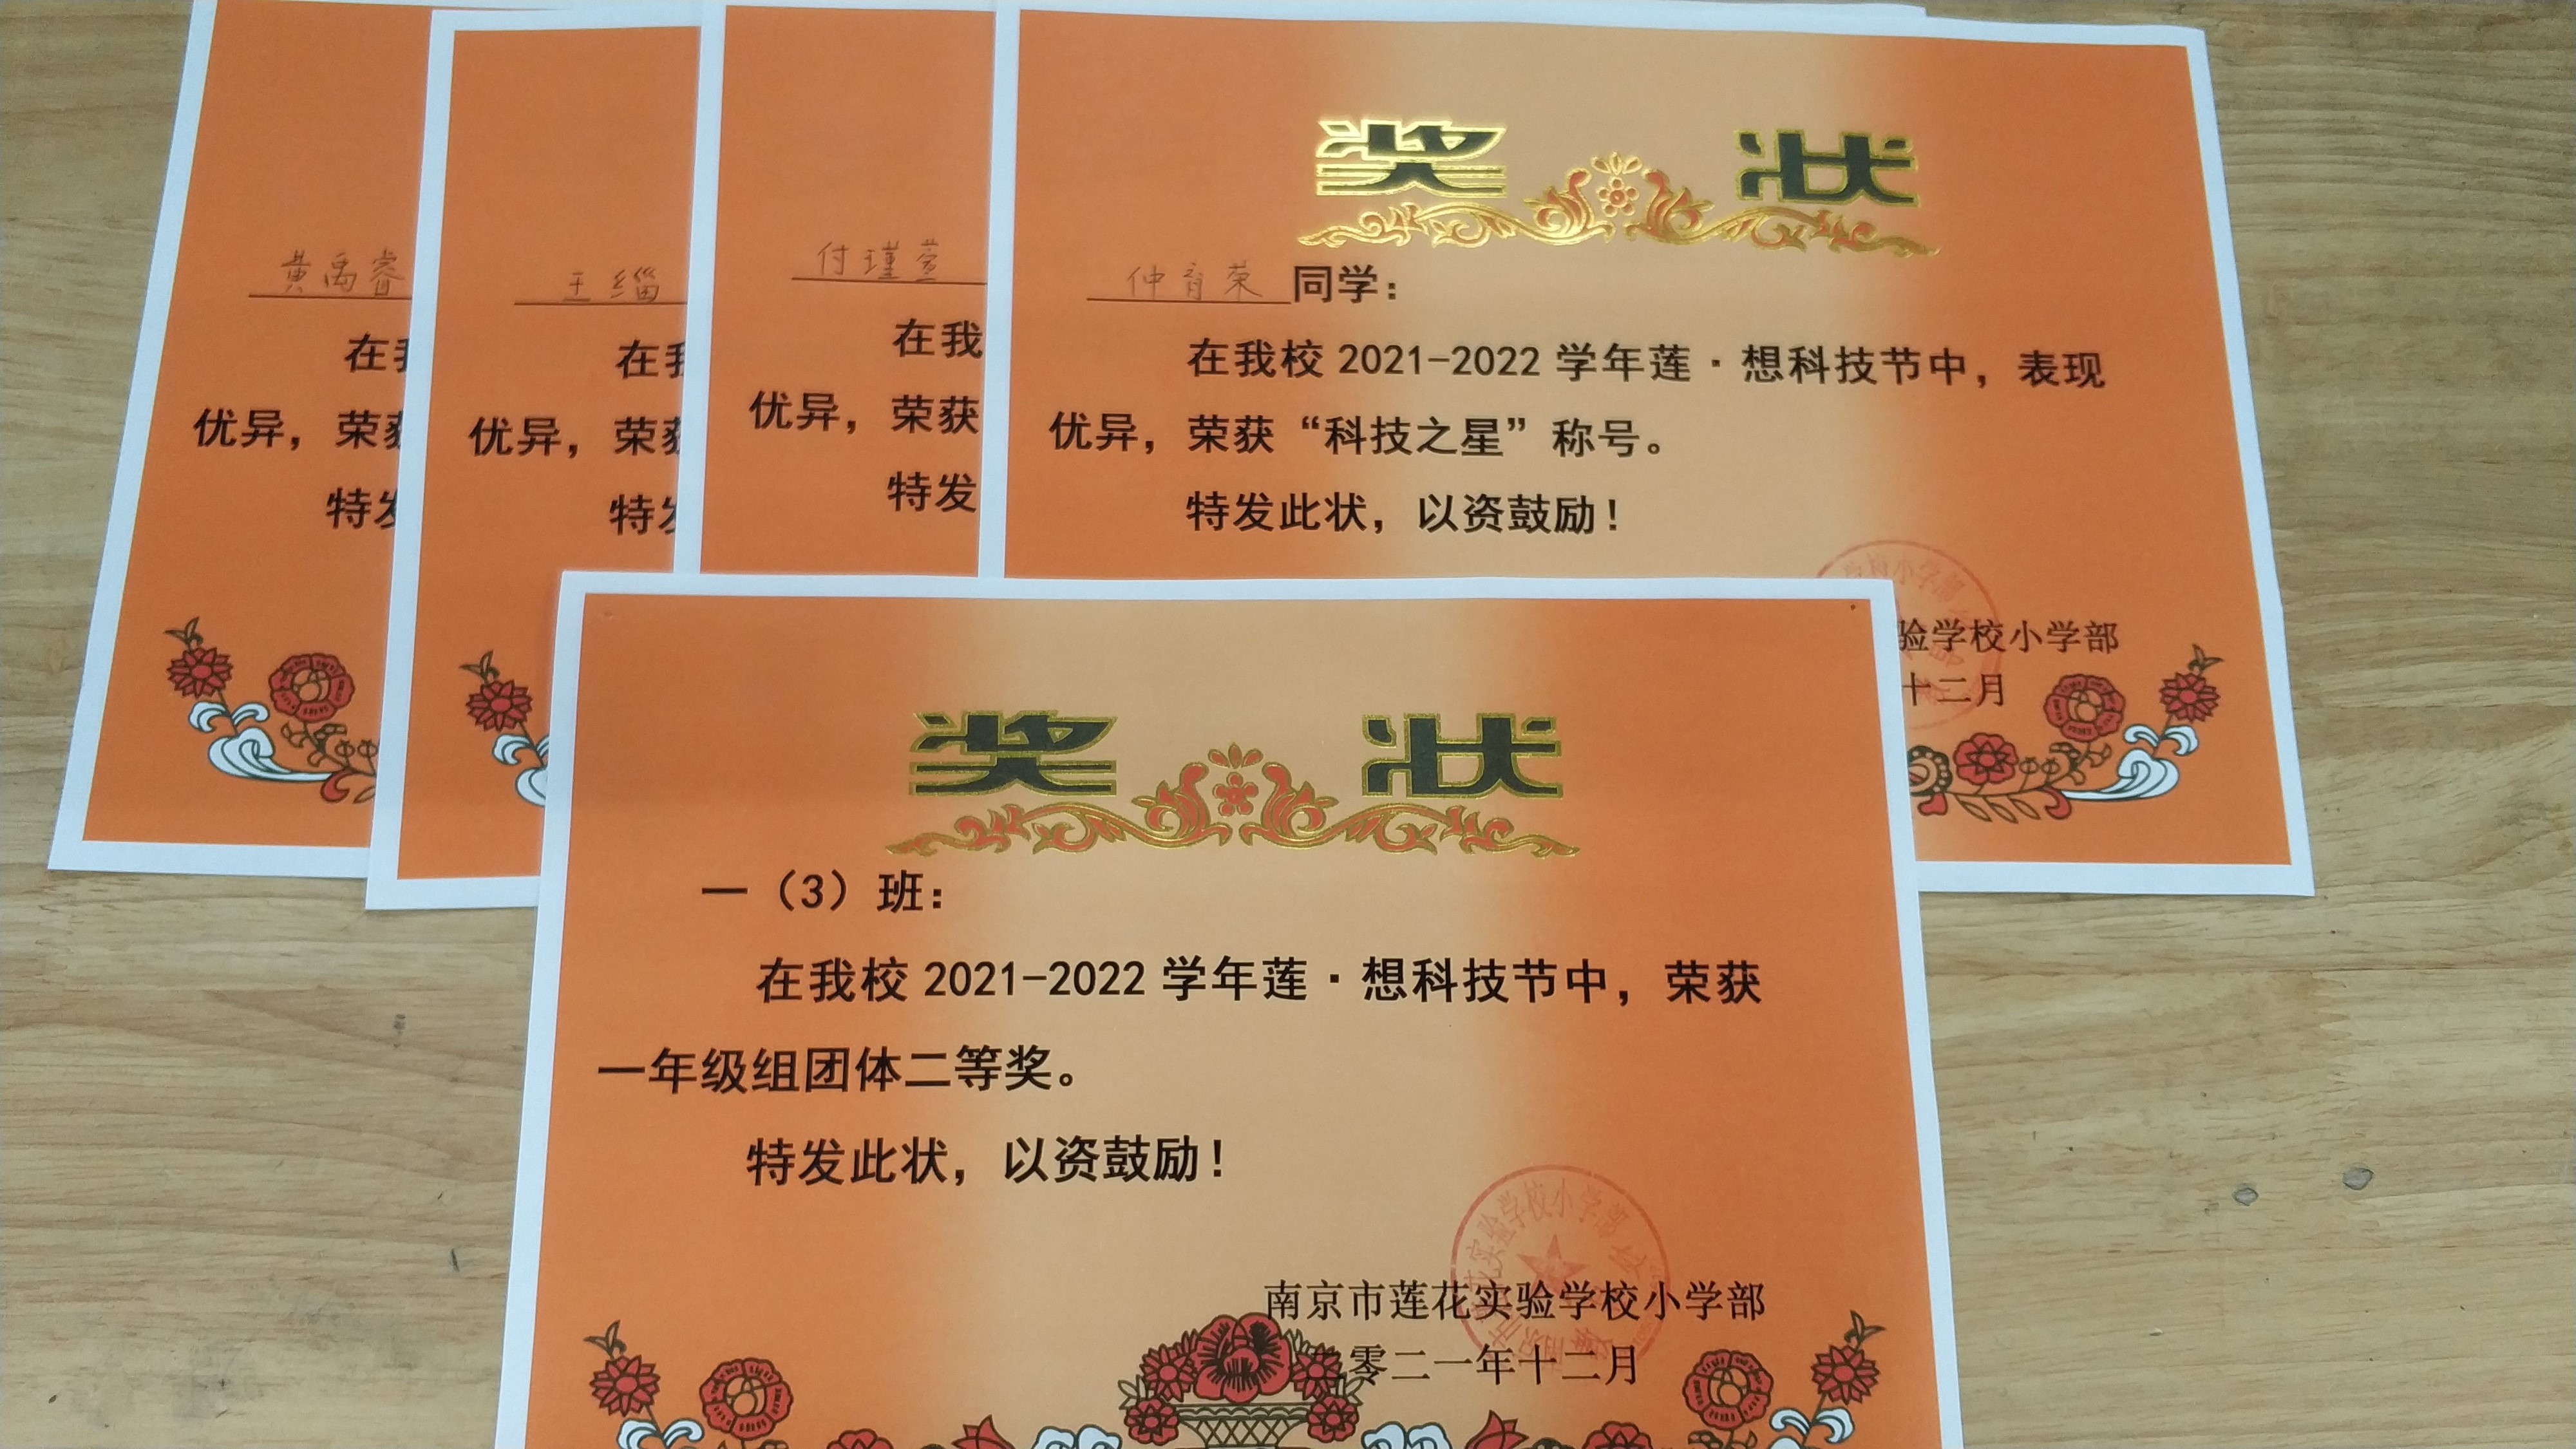 黄禹睿
在我
优异，荣获
特发
王缁
在我
优异，荣获
特发
付瑾萱
在我
优异，荣获
特发
奖 状
仲育荣同学：
在我校2021-2022学年莲·想科技节中，表现
优异，荣获“科技之星”称号。
特发此状，以资鼓励！
验学校小学部
十二月
奖 状
一（3）班：
在我校2021-2022学年莲·想科技节中，荣获
一年级组团体二等奖。
特发此状，以资鼓励！
南京市莲花实验学校小学部
零二一年十二月